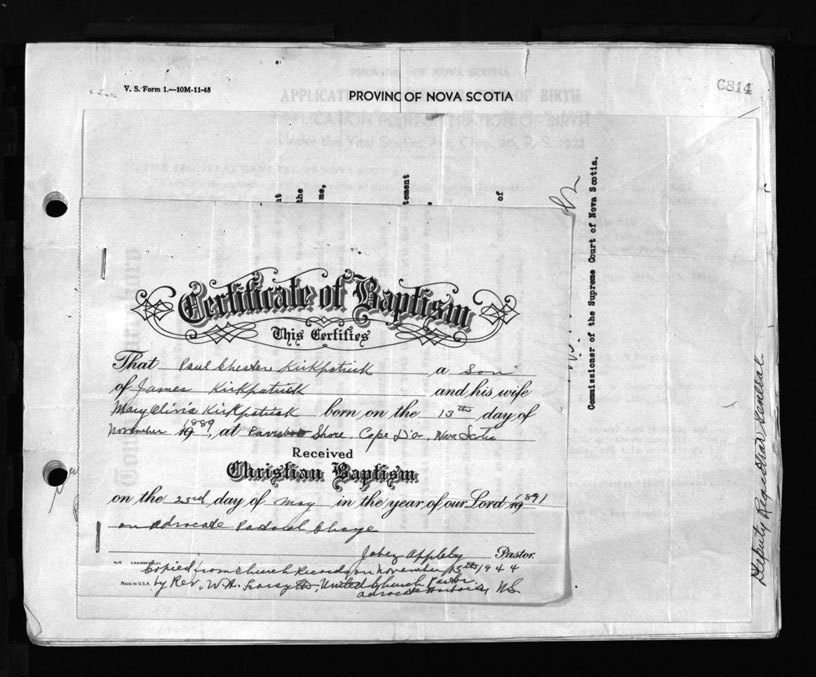 V. S. Form 1.—10M-11-43
PROVINC OF NOVA SCOTIA
6814
PROVINCE OF NOVA SCOTIA
Under the Vital Statistics Act, Chap. 20, R. S. 1923
the
me,
tement
of
Commissioner of the Supreme Court of Nova Scotia.
Deputy Registrar General
Certificate of Baptism
This Certifies
That Paul Chester Kirkpatrick a Son
of James Kirkpatrick and his wife
Mary Olivia Kirkpatrick born on the 13th day of
November 1889, at Shore, Cape D'or, Nova Scotia
Received
Christian Baptism
on the 23rd day of May in the year of our Lord 1891
on Advocate Pastoral Charge
Jabez Appleby Pastor.
Copied from Church Records on November 15th 1944
MADE IN U.S.A. by Rev. W. A. Forsythe, United Church Pastor
Advocate Harbour, NS